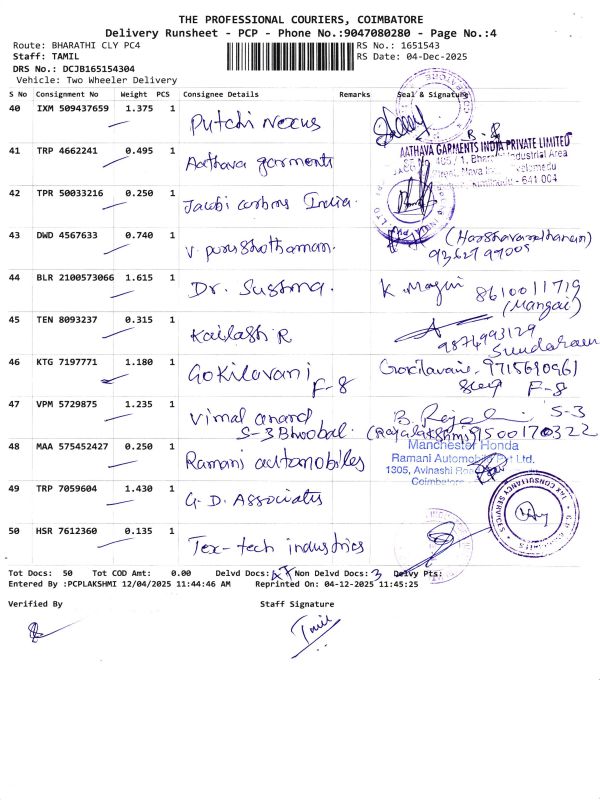 THE PROFESSIONAL COURIERS, COIMBATORE
Delivery Runsheet - PCP - Phone No.:9047080280 - Page No.:4
Route: BHARATHI CLY PC4 RS No.: 1651543
Staff: TAMIL RS Date: 04-Dec-2025
DRS No.: DCJB165154304
Vehicle: Two Wheeler Delivery
S No Consignment No Weight PCS Consignee Details Remarks Seal & Signature
40 IXM 509437659 1.375 1 Putchi Nexus
41 TRP 4662241 0.495 1 Aathava garments
AATHAVA GARMENTS INDIA PRIVATE LIMITED
Industrial Area
641 004
42 TPR 50033216 0.250 1 Jacobi carbons India.
43 DWD 4567633 0.740 1 V. purushothaman. (Harshavardhanan)
44 BLR 2100573066 1.615 1 Dr. Sushma. K. 8610011719
(Mangai)
45 TEN 8093237 0.315 1 Kailash R
9874993129
Sundaram
46 KTG 7197771 1.180 1 Gokilavani Gokilavani, 9715690961
F-8 F-8
47 VPM 5729875 1.235 1 Vimal anand S-3
S-3 Bhoobal. (Rajalakshmi) 9500170322
48 MAA 575452427 0.250 1 Ramani automobiles
Manchester Honda
Ramani Automobiles Pvt Ltd.
1305, Avinashi Road
Coimbatore
49 TRP 7059604 1.430 1 G. D. Associates
TAX CONSULTANCY SERVICES
50 HSR 7612360 0.135 1 Tex-tech industries
Tot Docs: 50 Tot COD Amt: 0.00 Delvd Docs: 47 Non Delvd Docs: 3 Delvy Pts:
Entered By :PCPLAKSHMI 12/04/2025 11:44:46 AM Reprinted On: 04-12-2025 11:45:25
Verified By Staff Signature